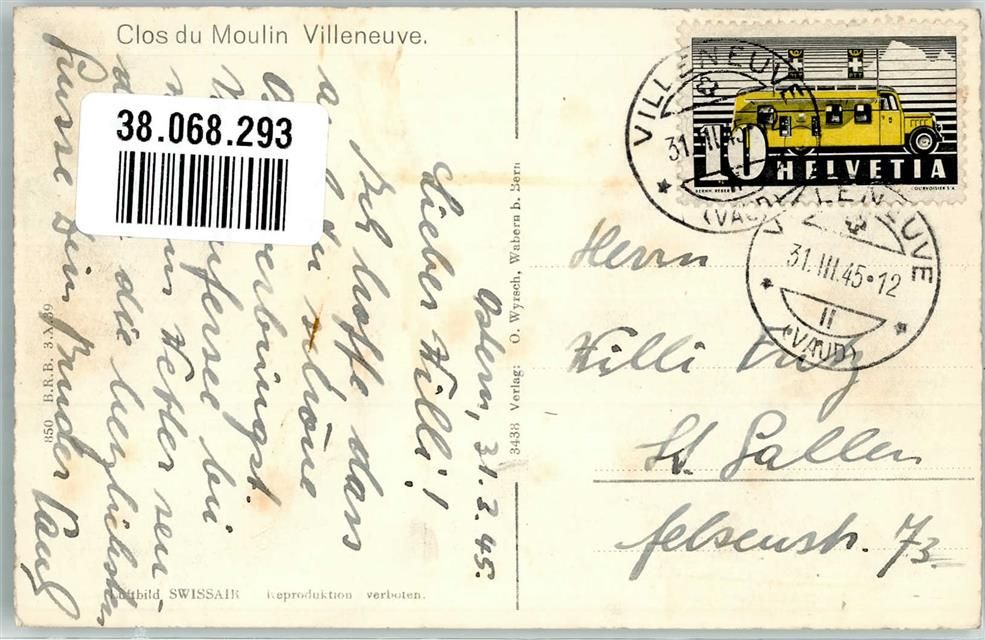 Clos du Moulin Villeneuve.
38.068.293
Ostern, 31.3.45.
Lieber Willi!
Ich hoffe dass
auch Du schöne
verbringst.
bei
Wetter sen-
die herzlichsten
Küsse Dein Bruder Paul
850 B.R.B. 3.X.39
3438 Verlag: O. Wyrsch, Wabern b. Bern
Luftbild SWISSAIR Reproduktion verboten.
10 HELVETIA
COURVOISIER S.A.
VILLENEUVE
31.III.45
(VAUD)
VILLENEUVE
31.III.45·12
II
(VAUD)
Herrn
Willi
St. Gallen
Felsenstr. 73